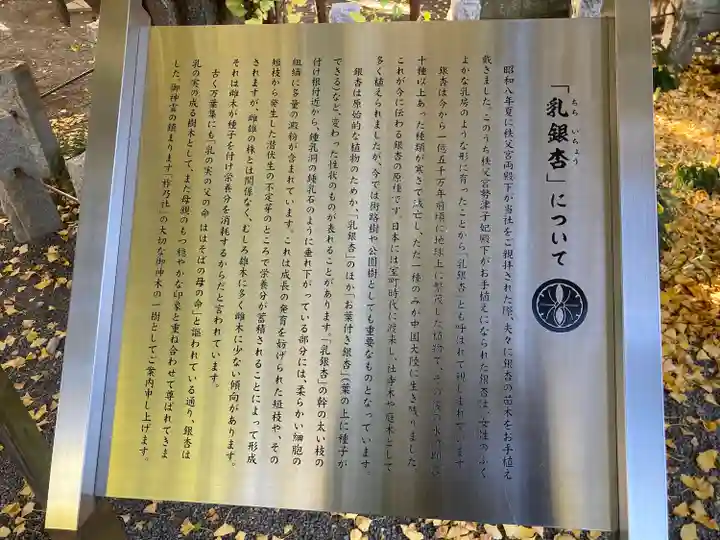 「乳銀杏」について
ちち いちょう
昭和八年夏に秩父宮両殿下が当社をご親拝された際、夫々に銀杏の苗木をお手植え
戴きました。このうち秩父宮勢津子妃殿下がお手植えになられた銀杏は、女性のふく
よかな乳房のような形に育ったことから「乳銀杏」とも呼ばれて親しまれています
銀杏は今から一億五千万年前頃に地球上に繁茂した植物で、その後の氷河期に
十種以上あった種類が寒さで滅亡し、ただ一種のみが中国大陸に生き残りました
これが今に伝わる銀杏の原種です。日本には室町時代に渡来し、社寺木や庭木として
多く植えられましたが、今では街路樹や公園樹としても重要なものとなっています。
銀杏は原始的な植物のためか、「乳銀杏」のほか「お葉付き銀杏」(葉の上に種子が
できる)など、変わった性状のものが表れることがあります。「乳銀杏」の幹の太い枝の
付け根付近から、鍾乳洞の鍾乳石のように垂れ下がっている部分には、柔らかい細胞の
組織に多量の澱粉が含まれています。これは成長の発育を妨げられた短枝や、その
短枝から発生した潜伏生の不定芽のところで栄養分が蓄積されることによって形成
されますが、雌雄の株とは関係なく、むしろ雄木に多く雌木に少ない傾向があります。
それは雌木が種子を付け栄養分を消耗するからだと言われています。
古く万葉集にも「乳の実の父の命 ははそばの母の命」と謳われている通り、銀杏は
乳の実の成る樹木として、また母親のもつ穏やかな印象と重ね合わせて尊ばれてきま
した。御神霊の鎮まります「柞乃杜」の大切な御神木の一樹としてご案内申し上げます。